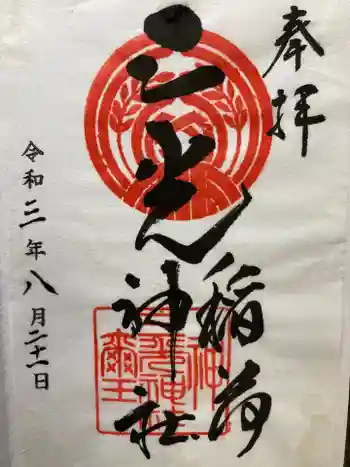 奉拝
三光
稲荷
神社
令和三年八月二十一日